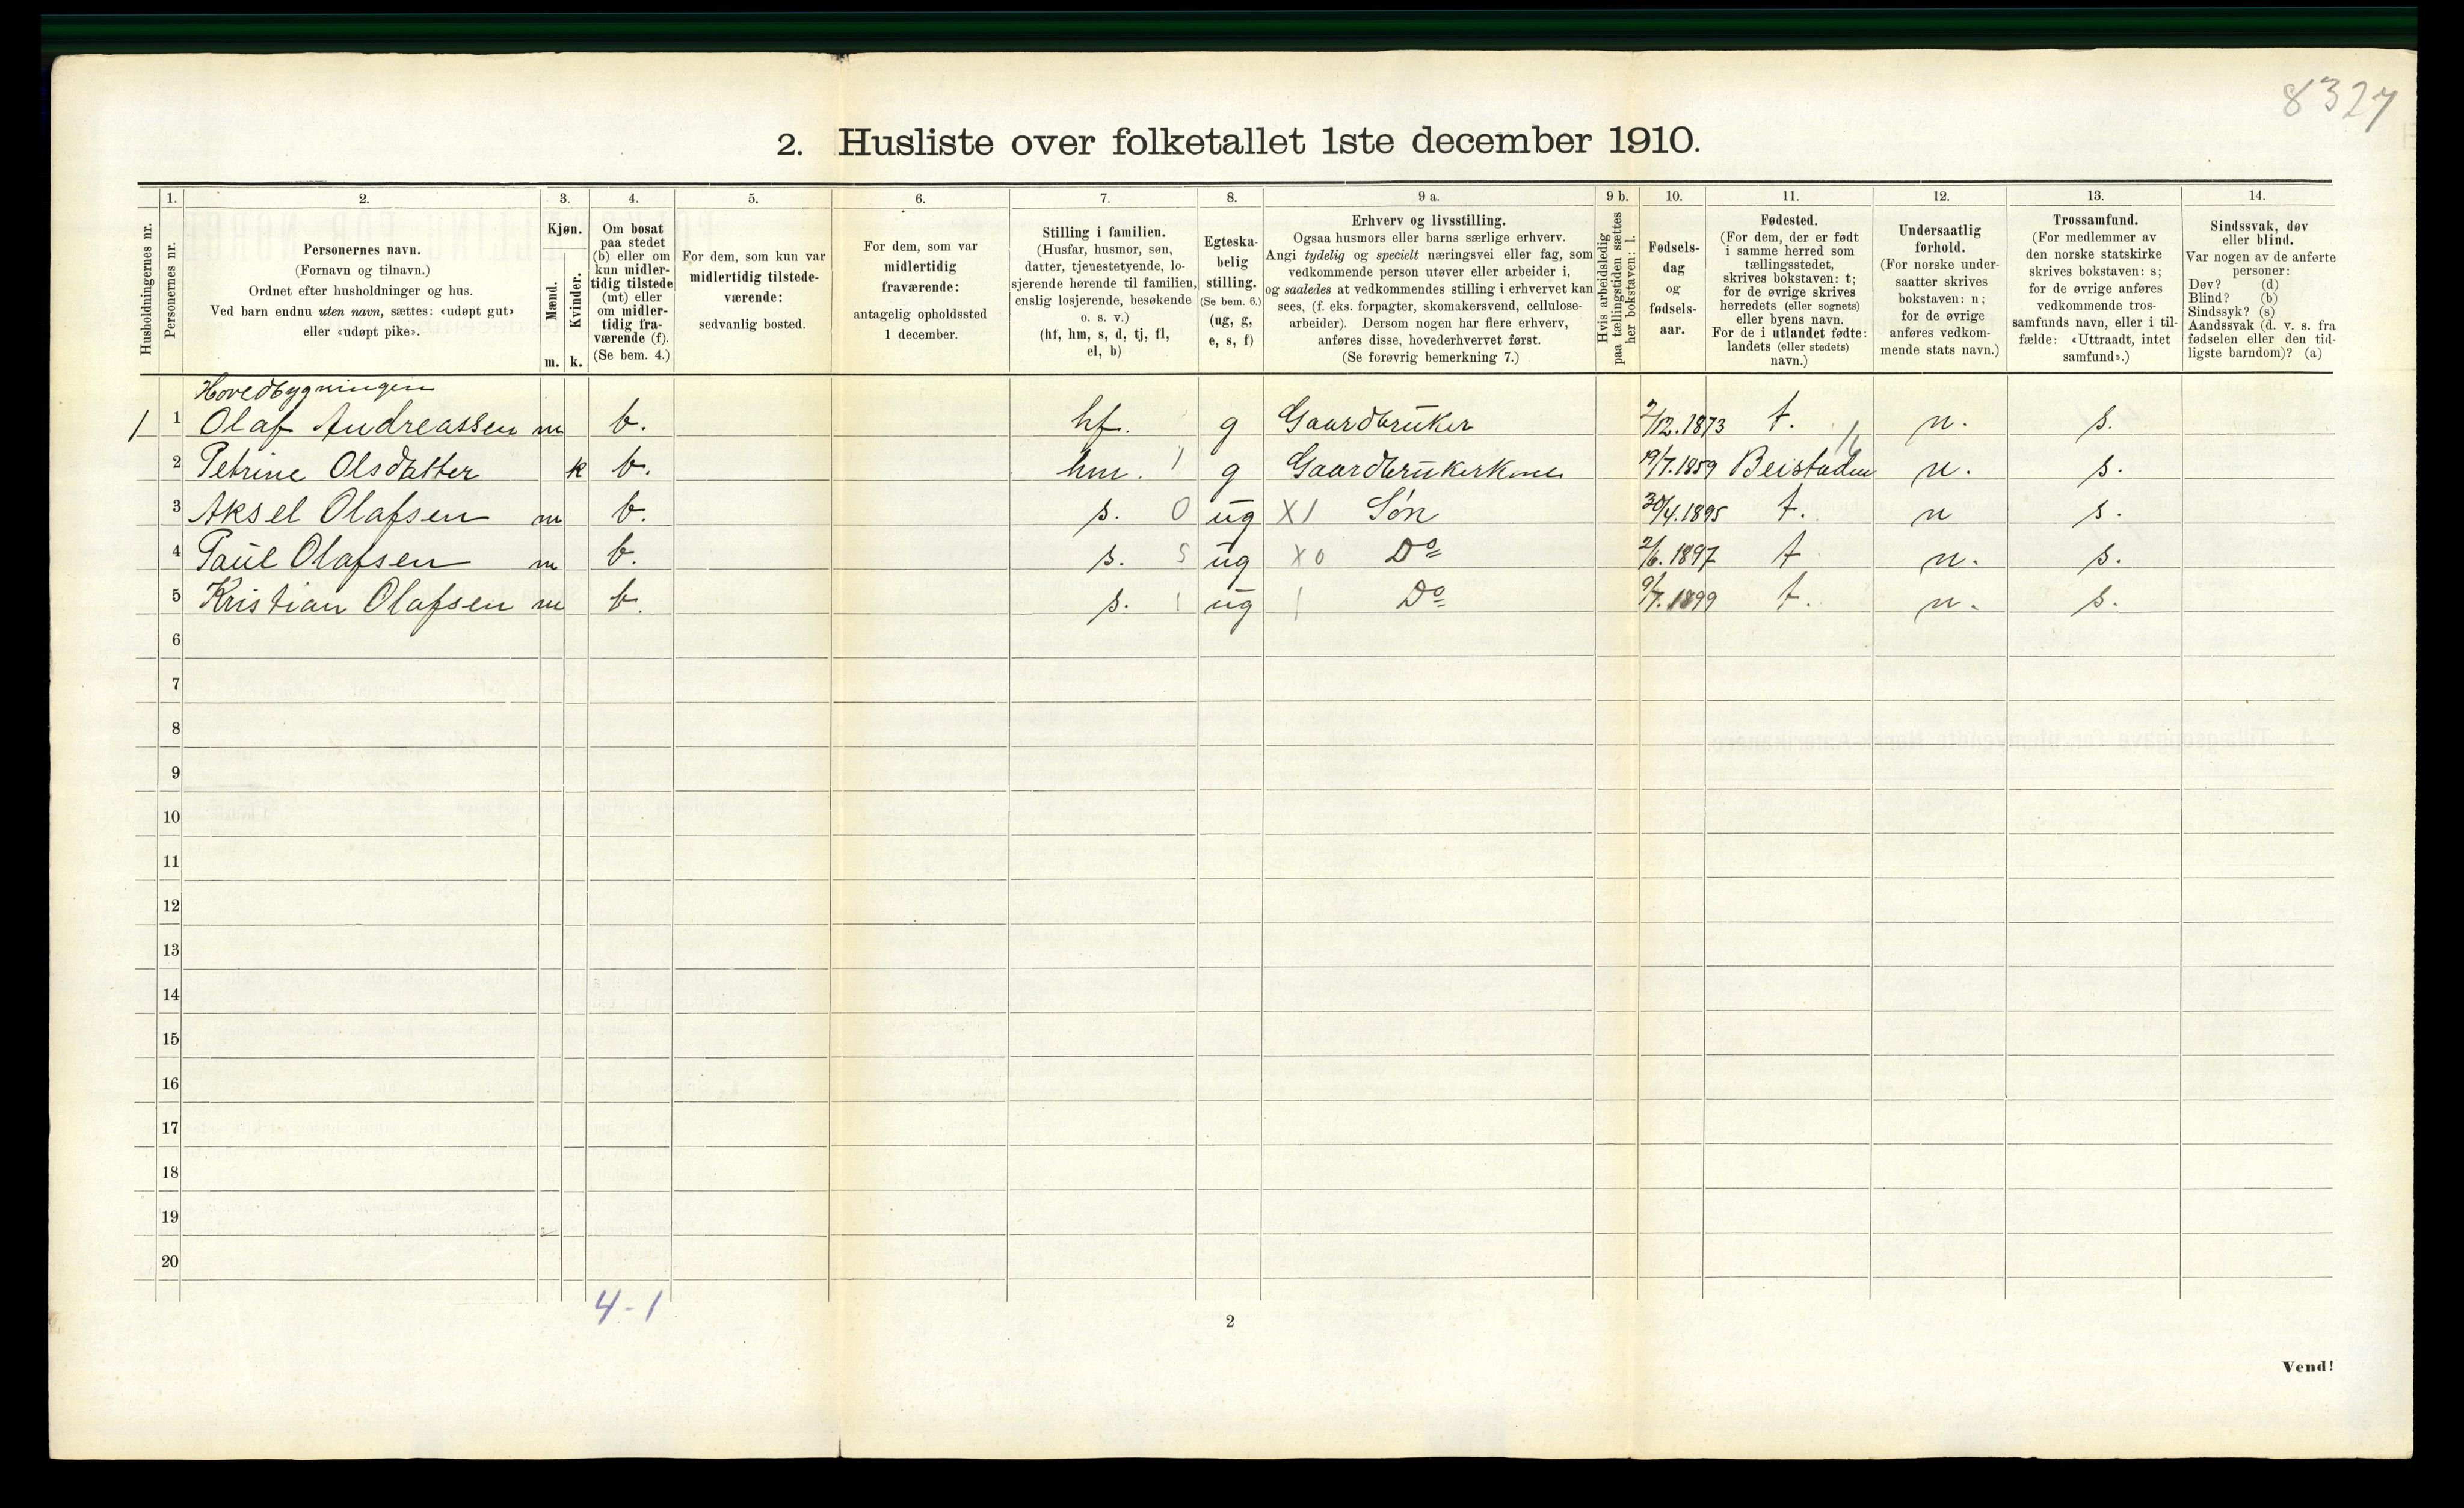 8327
2. Husliste over folketallet 1ste december 1910.
Husholdningernes nr.
1.
Personernes nr.
2.
Personernes navn.
(Fornavn og tilnavn.)
Ordnet efter husholdninger og hus.
Ved barn endnu uten navn, sættes: «udøpt gut»
eller «udøpt pike».
3.
Kjøn.
Mænd.
Kvinder.
m. k.
4.
Om bosat
paa stedet
(b) eller om
kun midler-
tidig tilstede
(mt) eller
om midler-
tidig fra-
værende (f).
(Se bem. 4.)
5.
For dem, som kun var
midlertidig tilstede-
værende:
sedvanlig bosted.
6.
For dem, som var
midlertidig
fraværende:
antagelig opholdssted
1 december.
7.
Stilling i familien.
(Husfar, husmor, søn,
datter, tjenestetyende, lo-
sjerende hørende til familien,
enslig losjerende, besøkende
o. s. v.)
(hf, hm, s, d, tj, fl,
el, b)
8.
Egteska-
belig
stilling.
(Se bem. 6.)
(ug, g,
e, s, f)
9 a.
Erhverv og livsstilling.
Ogsaa husmors eller barns særlige erhverv.
Angi tydelig og specielt næringsvei eller fag, som
vedkommende person utøver eller arbeider i,
og saaledes at vedkommendes stilling i erhvervet kan
sees, (f. eks. forpagter, skomakersvend, cellulose-
arbeider). Dersom nogen har flere erhverv,
anføres disse, hovederhvervet først.
(Se forøvrig bemerkning 7.)
9 b.
Hvis arbeidsledig
paa tællingstiden sættes
her bokstaven: l.
10.
Fødsels-
dag
og
fødsels-
aar.
11.
Fødested.
(For dem, der er født
i samme herred som
tællingsstedet,
skrives bokstaven: t;
for de øvrige skrives
herredets (eller sognets)
eller byens navn.
For de i utlandet fødte:
landets (eller stedets)
navn.)
12.
Undersaatlig
forhold.
(For norske under-
saatter skrives
bokstaven: n;
for de øvrige
anføres vedkom-
mende stats navn.)
13.
Trossamfund.
(For medlemmer av
den norske statskirke
skrives bokstaven: s;
for de øvrige anføres
vedkommende tros-
samfunds navn, eller i til-
fælde: «Uttraadt, intet
samfund».)
14.
Sindssvak, døv
eller blind.
Var nogen av de anførte
personer:
Døv? (d)
Blind? (b)
Sindssyk? (s)
Aandssvak (d. v. s. fra
fødselen eller den tid-
ligste barndom)? (a)
Hovedbygningen
1 1 Olaf Andreassen m b. hf. g Gaardbruker 2/12.1873 t. n. s.
2 Petrine Olsdatter k b. hm. 1 g Gaardbrukerkone 19/7.1859 Beistaden n. s.
3 Aksel Olafsen m b. s. 0 ug X1 Søn 30/4.1895 t. n s.
4 Paul Olafsen m b. s. 5 ug X0 Do 2/6.1897 t n. s.
5 Kristian Olafsen m b. s. 1 ug 1 Do 9/7.1899 t. n. s.
6
7
8
9
10
11
12
13
14
15
16
17
18
19
20
4-1
2
Vend!